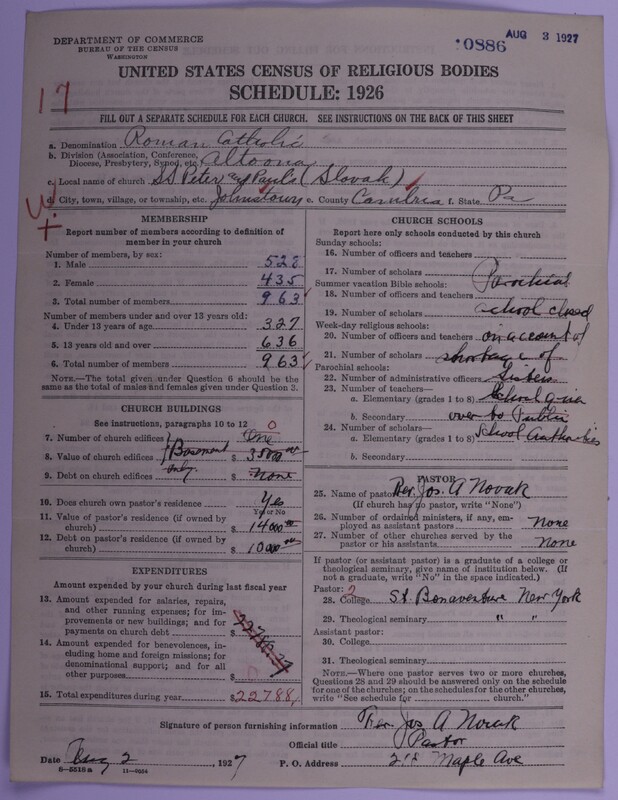 DEPARTMENT OF COMMERCE
BUREAU OF THE CENSUS
WASHINGTON
:0886
AUG 3 1927
UNITED STATES CENSUS OF RELIGIOUS BODIES
SCHEDULE: 1926
17
FILL OUT A SEPARATE SCHEDULE FOR EACH CHURCH. SEE INSTRUCTIONS ON THE BACK OF THIS SHEET
a. Denomination Roman Catholic
b. Division (Association, Conference, Diocese, Presbytery, Synod, etc.) Altoona
c. Local name of church SS Peter and Pauls (Slovak)
d. City, town, village, or township, etc. Johnstown e. County Cambria f. State Pa
MEMBERSHIP
Report number of members according to definition of
member in your church
Number of members, by sex:
1. Male 528
2. Female 435
3. Total number of members 963
Number of members under and over 13 years old:
4. Under 13 years of age 327
5. 13 years old and over 636
6. Total number of members 963
NOTE.—The total given under Question 6 should be the
same as the total of males and females given under Question 3.
CHURCH BUILDINGS
See instructions, paragraphs 10 to 12 0
7. Number of church edifices One
8. Value of church edifices Basement only. $
9. Debt on church edifices $ None
10. Does church own pastor's residence Yes
Yes or No
11. Value of pastor's residence (if owned by
church) $ 14000 00
12. Debt on pastor's residence (if owned by
church) $ 10000
EXPENDITURES
Amount expended by your church during last fiscal year
13. Amount expended for salaries, repairs,
and other running expenses; for im-
provements or new buildings; and for
payments on church debt $
14. Amount expended for benevolences, in-
cluding home and foreign missions; for
denominational support; and for all
other purposes $
15. Total expenditures during year $ 22788
CHURCH SCHOOLS
Report here only schools conducted by this church
Sunday schools:
16. Number of officers and teachers
17. Number of scholars Parochial
Summer vacation Bible schools:
18. Number of officers and teachers
19. Number of scholars school closed
Week-day religious schools:
20. Number of officers and teachers on account of
21. Number of scholars shortage of
Parochial schools:
22. Number of administrative officers Sisters
23. Number of teachers—
a. Elementary (grades 1 to 8) School given
b. Secondary over to Public
24. Number of scholars—
a. Elementary (grades 1 to 8) School Authorities
b. Secondary
PASTOR
25. Name of pastor Rev. Jos. A Novak
(If church has no pastor, write "None")
26. Number of ordained ministers, if any, em-
ployed as assistant pastors None
27. Number of other churches served by the
pastor or his assistants None
If pastor (or assistant pastor) is a graduate of a college or
theological seminary, give name of institution below. (If
not a graduate, write "No" in the space indicated.)
Pastor: 2
28. College St. Bonaventure New York
29. Theological seminary " "
Assistant pastor:
30. College
31. Theological seminary
NOTE.—Where one pastor serves two or more churches,
Questions 28 and 29 should be answered only on the schedule
for one of the churches; on the schedules for the other churches,
write "See schedule for church."
Signature of person furnishing information Rev. Jos A Novak
Official title Pastor
Date Aug 2, 1927 P. O. Address Maple Ave
8—5518a 11—9004